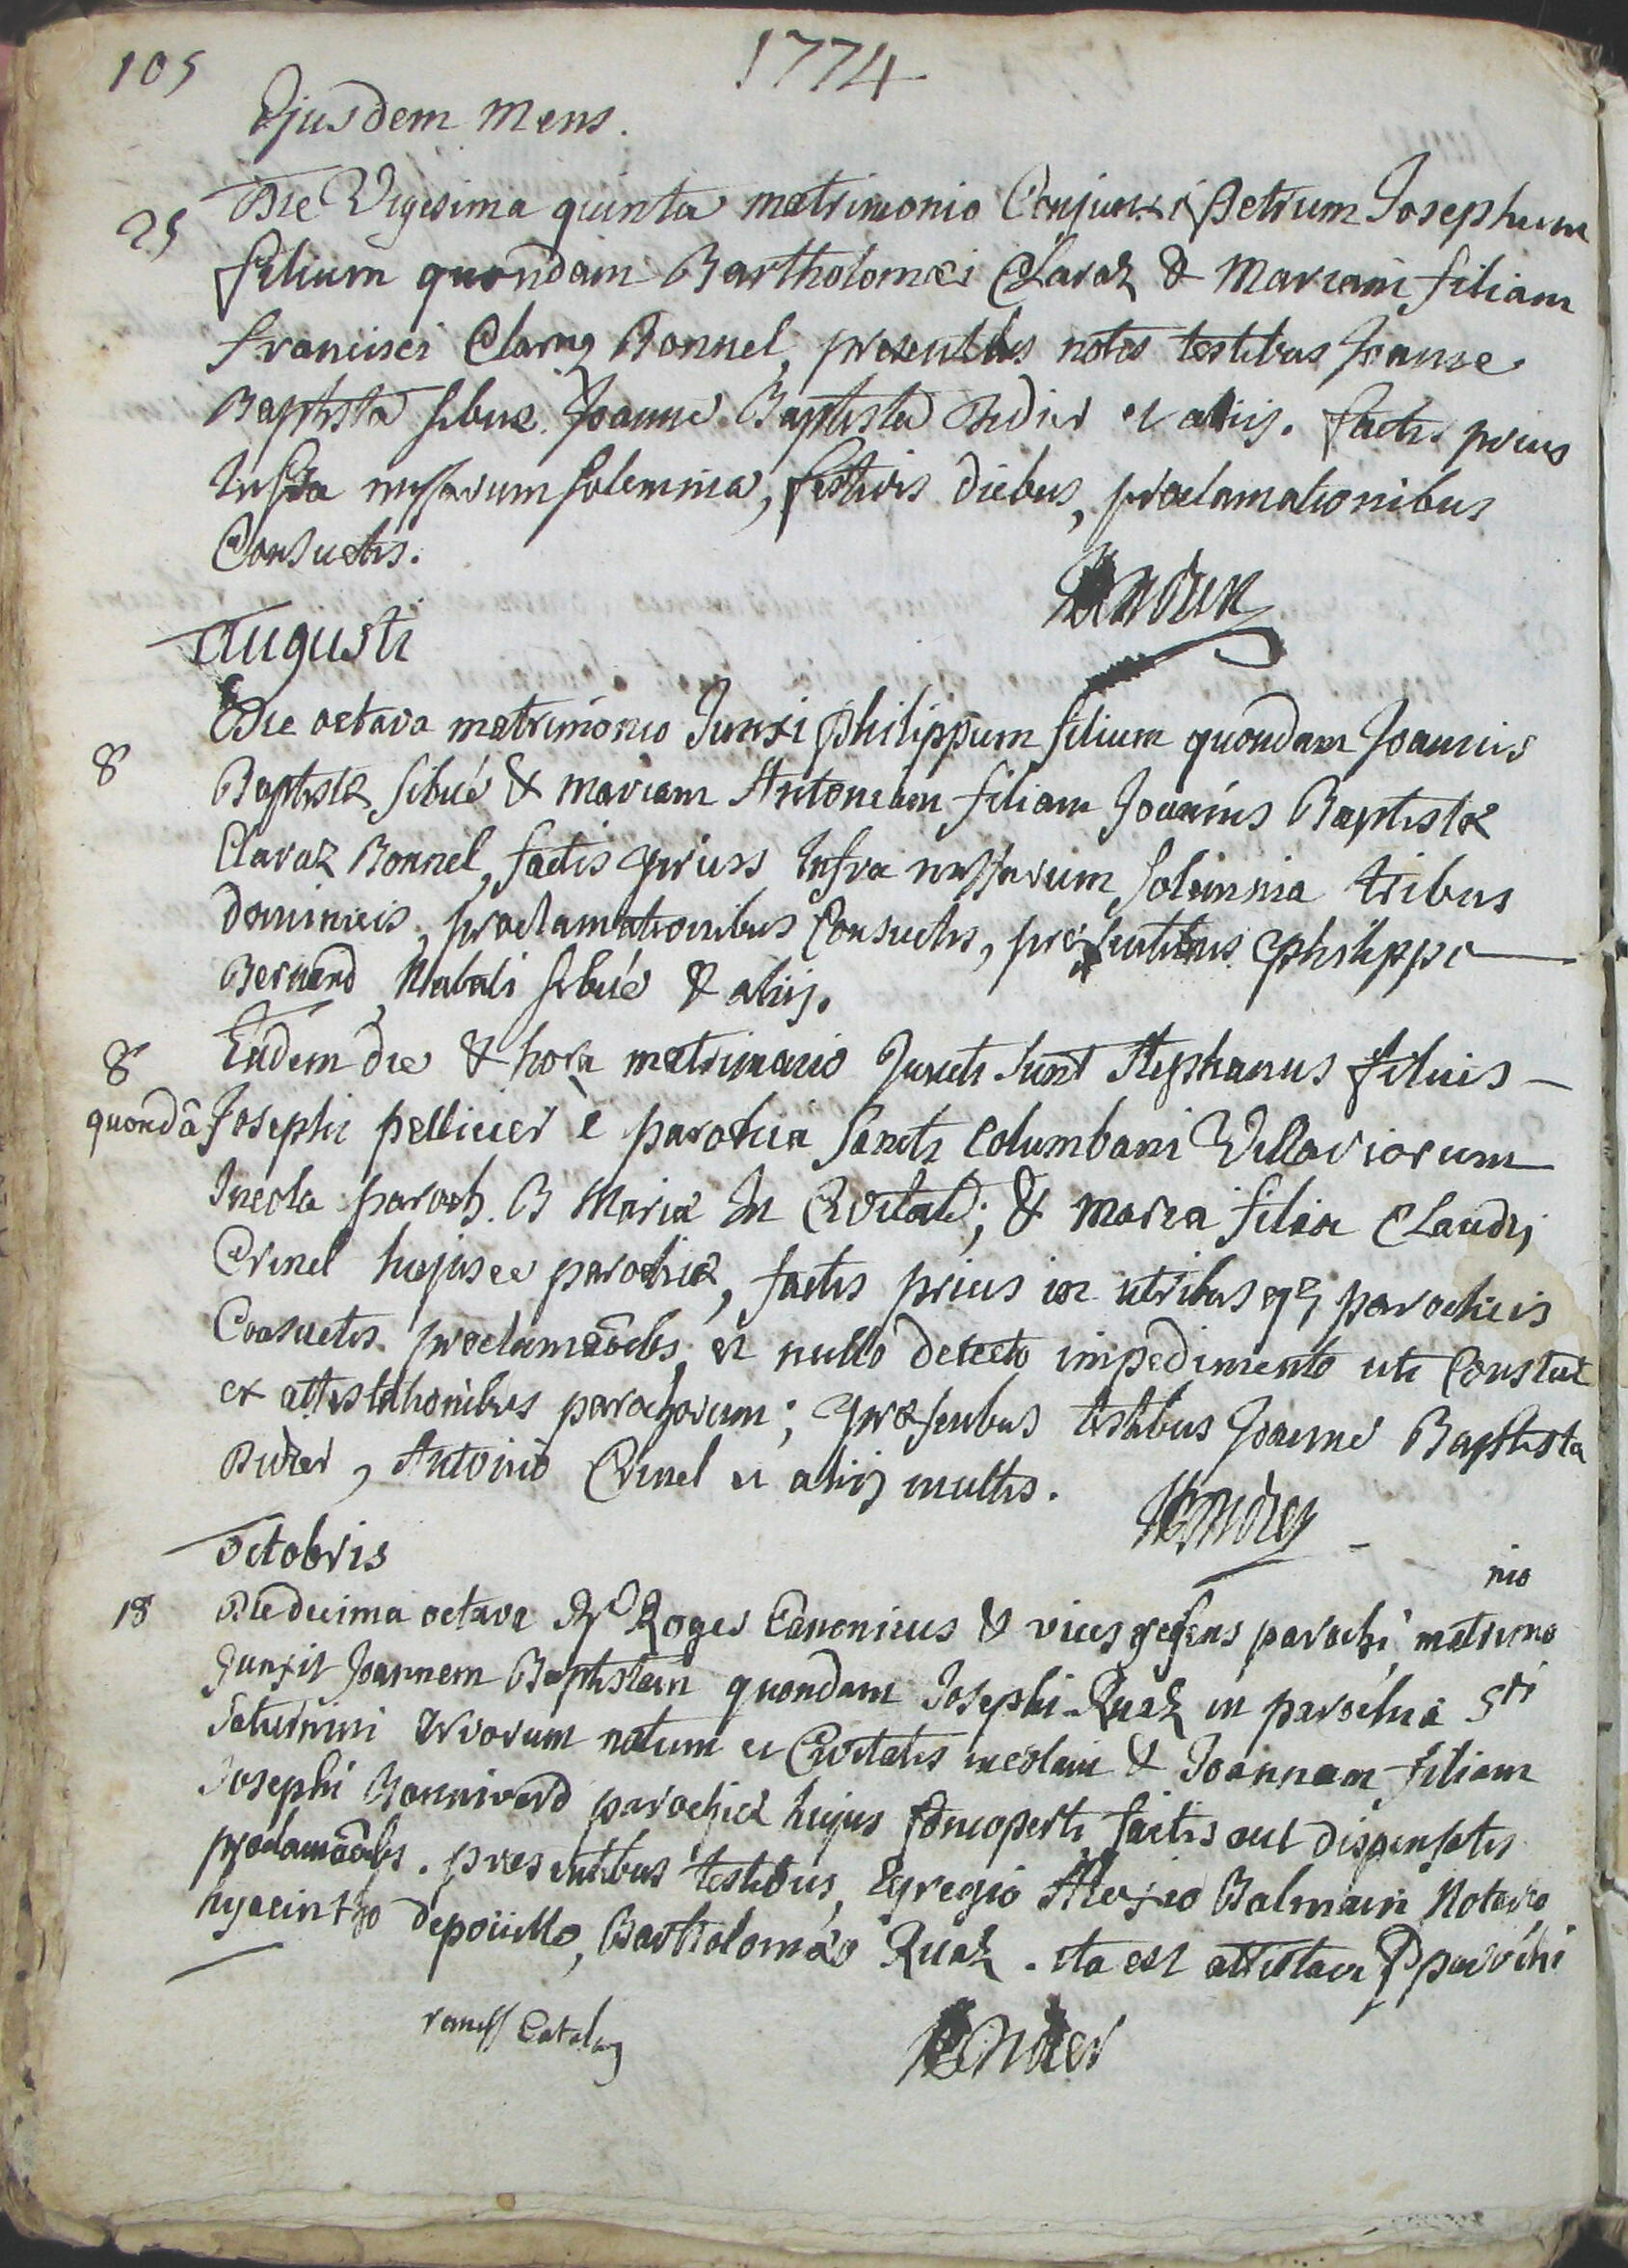 105
1774
Ejusdem Mens.
25
Die Vigesima quinta matrimonio Conjunxi Petrum Josephum
filium quondam Bartholomæi Claraz & Mariam filiam
francisci Claraz Bonnel, presentibus notis testibus Joanne
Baptista Sibué Joanne Baptista Didier et aliis. factis prius
Infra missarum solemnia, festivis diebus, proclamationibus
Consuetis.
Augusti
8
Die octava matrimonio Junxi philippum filium quondam Joannis
Baptistæ Sibué & Mariam Antoniam filiam Joannis Baptistæ
Claraz Bonnel, factis prius Infra missarum Solemnia tribus
dominicis, proclamationibus Consuetis, præsentibus philippo
Bernard, Natali Sibué & aliis.
8
Eadem die & hora matrimonio Juncti Sunt Stephanus filius
quondā Josephi pellicier è parochia Sancti Columbani Villariorum
Incola paroch. B Mariæ In Civitate; & Maria filia Claudii
Crinel hujusce parochiæ, factis prius in utribusque parochiis
Consuetis proclamāōbs, et nullo detecto impedimento uti Constat
ex attestationibus parochorum; præsentibus testibus Joanne Baptista
Didier, Antonio Crinel et aliis multis.
Octobris
18
nio
Die decima octava Rd Roges Canonicus & vices gerens parochi matrimo
Junxit Joannem Baptistam quondam Josephi Ruaz in parochia Sti
Saturnini natum et Civitatis incolam & Joannam filiam
Josephi Bonnivard parochiæ hujus foncoperti factis aut dispensatis
proclamāōbs. præsentibus testibus, Egregio Alexio Balmain Notario
hyacintho depoiello, Bartholomæo Ruaz. ita est parochi